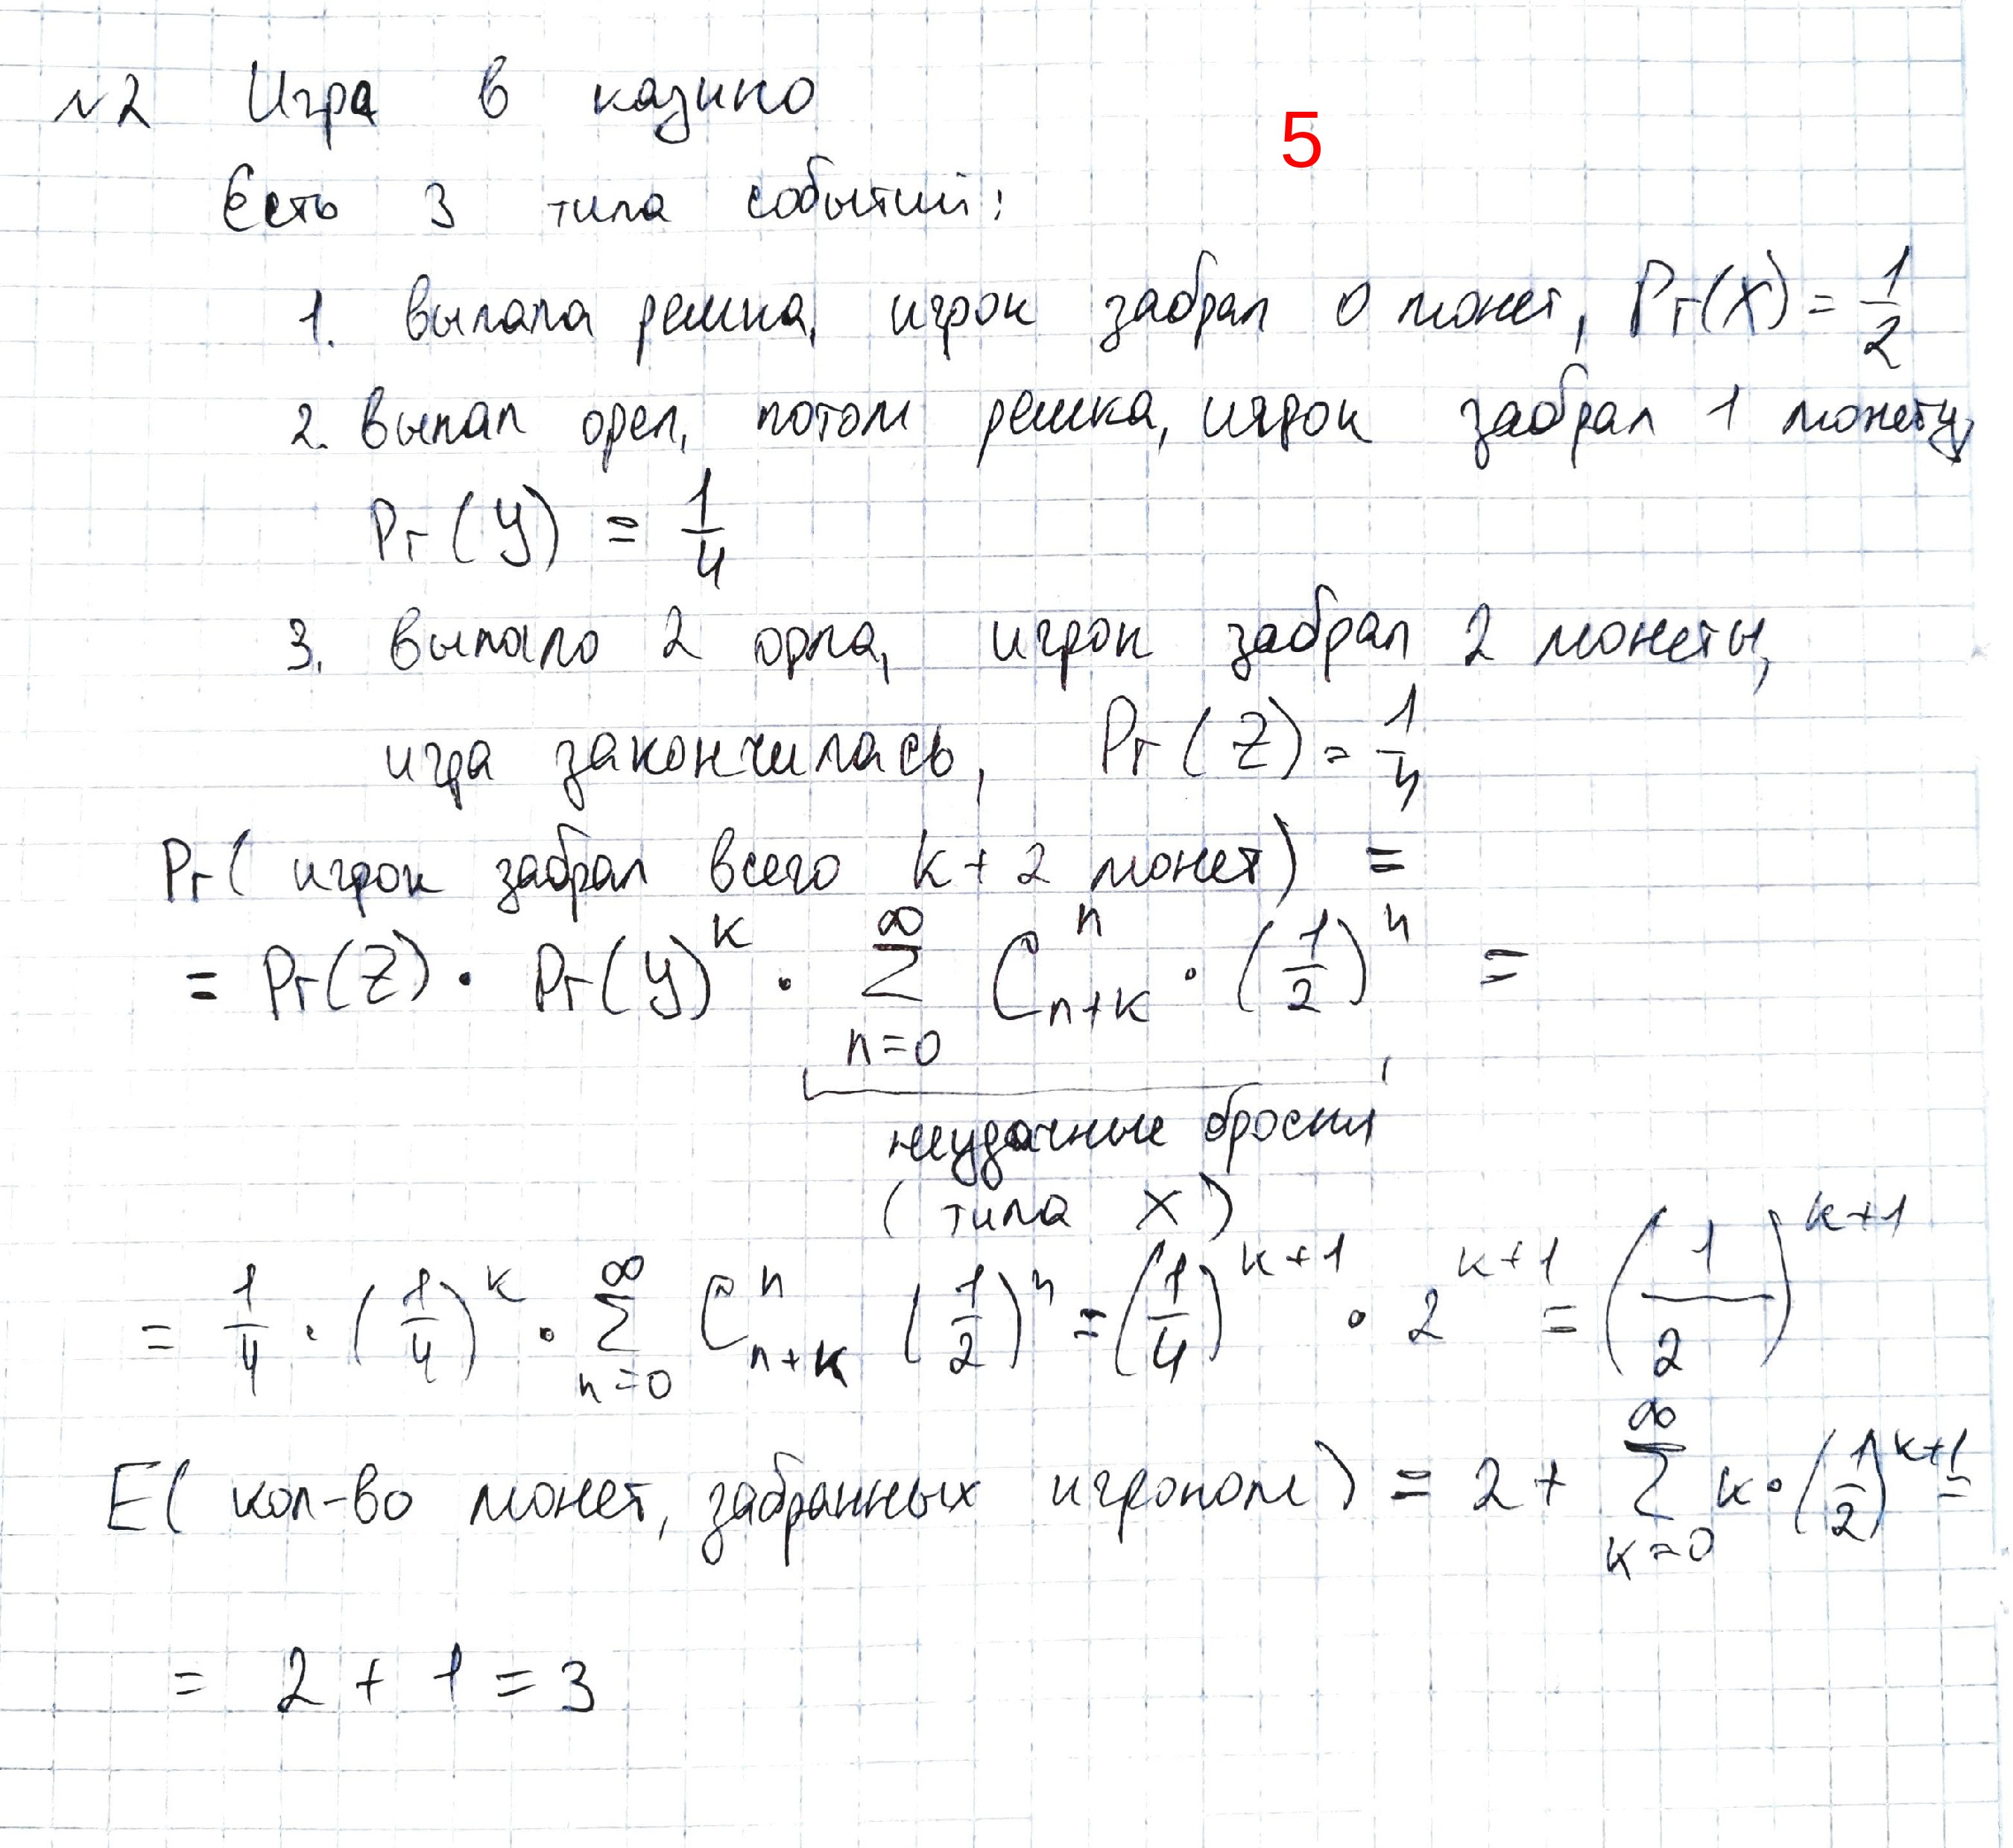 №2 Игра в казино
5
Есть 3 типа событий:
1. выпала решка, игрок забрал 0 монет, Pr(X) = 1/2
2. выпал орел, потом решка, игрок забрал 1 монету,
Pr(Y) = 1/4
3. выпало 2 орла, игрок забрал 2 монеты,
игра закончилась, Pr(Z) = 1/4
Pr( игрок забрал всего k+2 монет) =
= Pr(Z) · Pr(Y)^k · ∑_{n=0}^{∞} C_{n+k}^{n} · (1/2)^n =
неудачные броски
(типа X)
= 1/4 · (1/4)^k · ∑_{n=0}^{∞} C_{n+k}^{n} (1/2)^n = (1/4)^{k+1} · 2^{k+1} = (1/2)^{k+1}
E( кол-во монет, забранных игроком) = 2 + ∑_{k=0}^{∞} k · (1/2)^{k+1} =
= 2 + 1 = 3